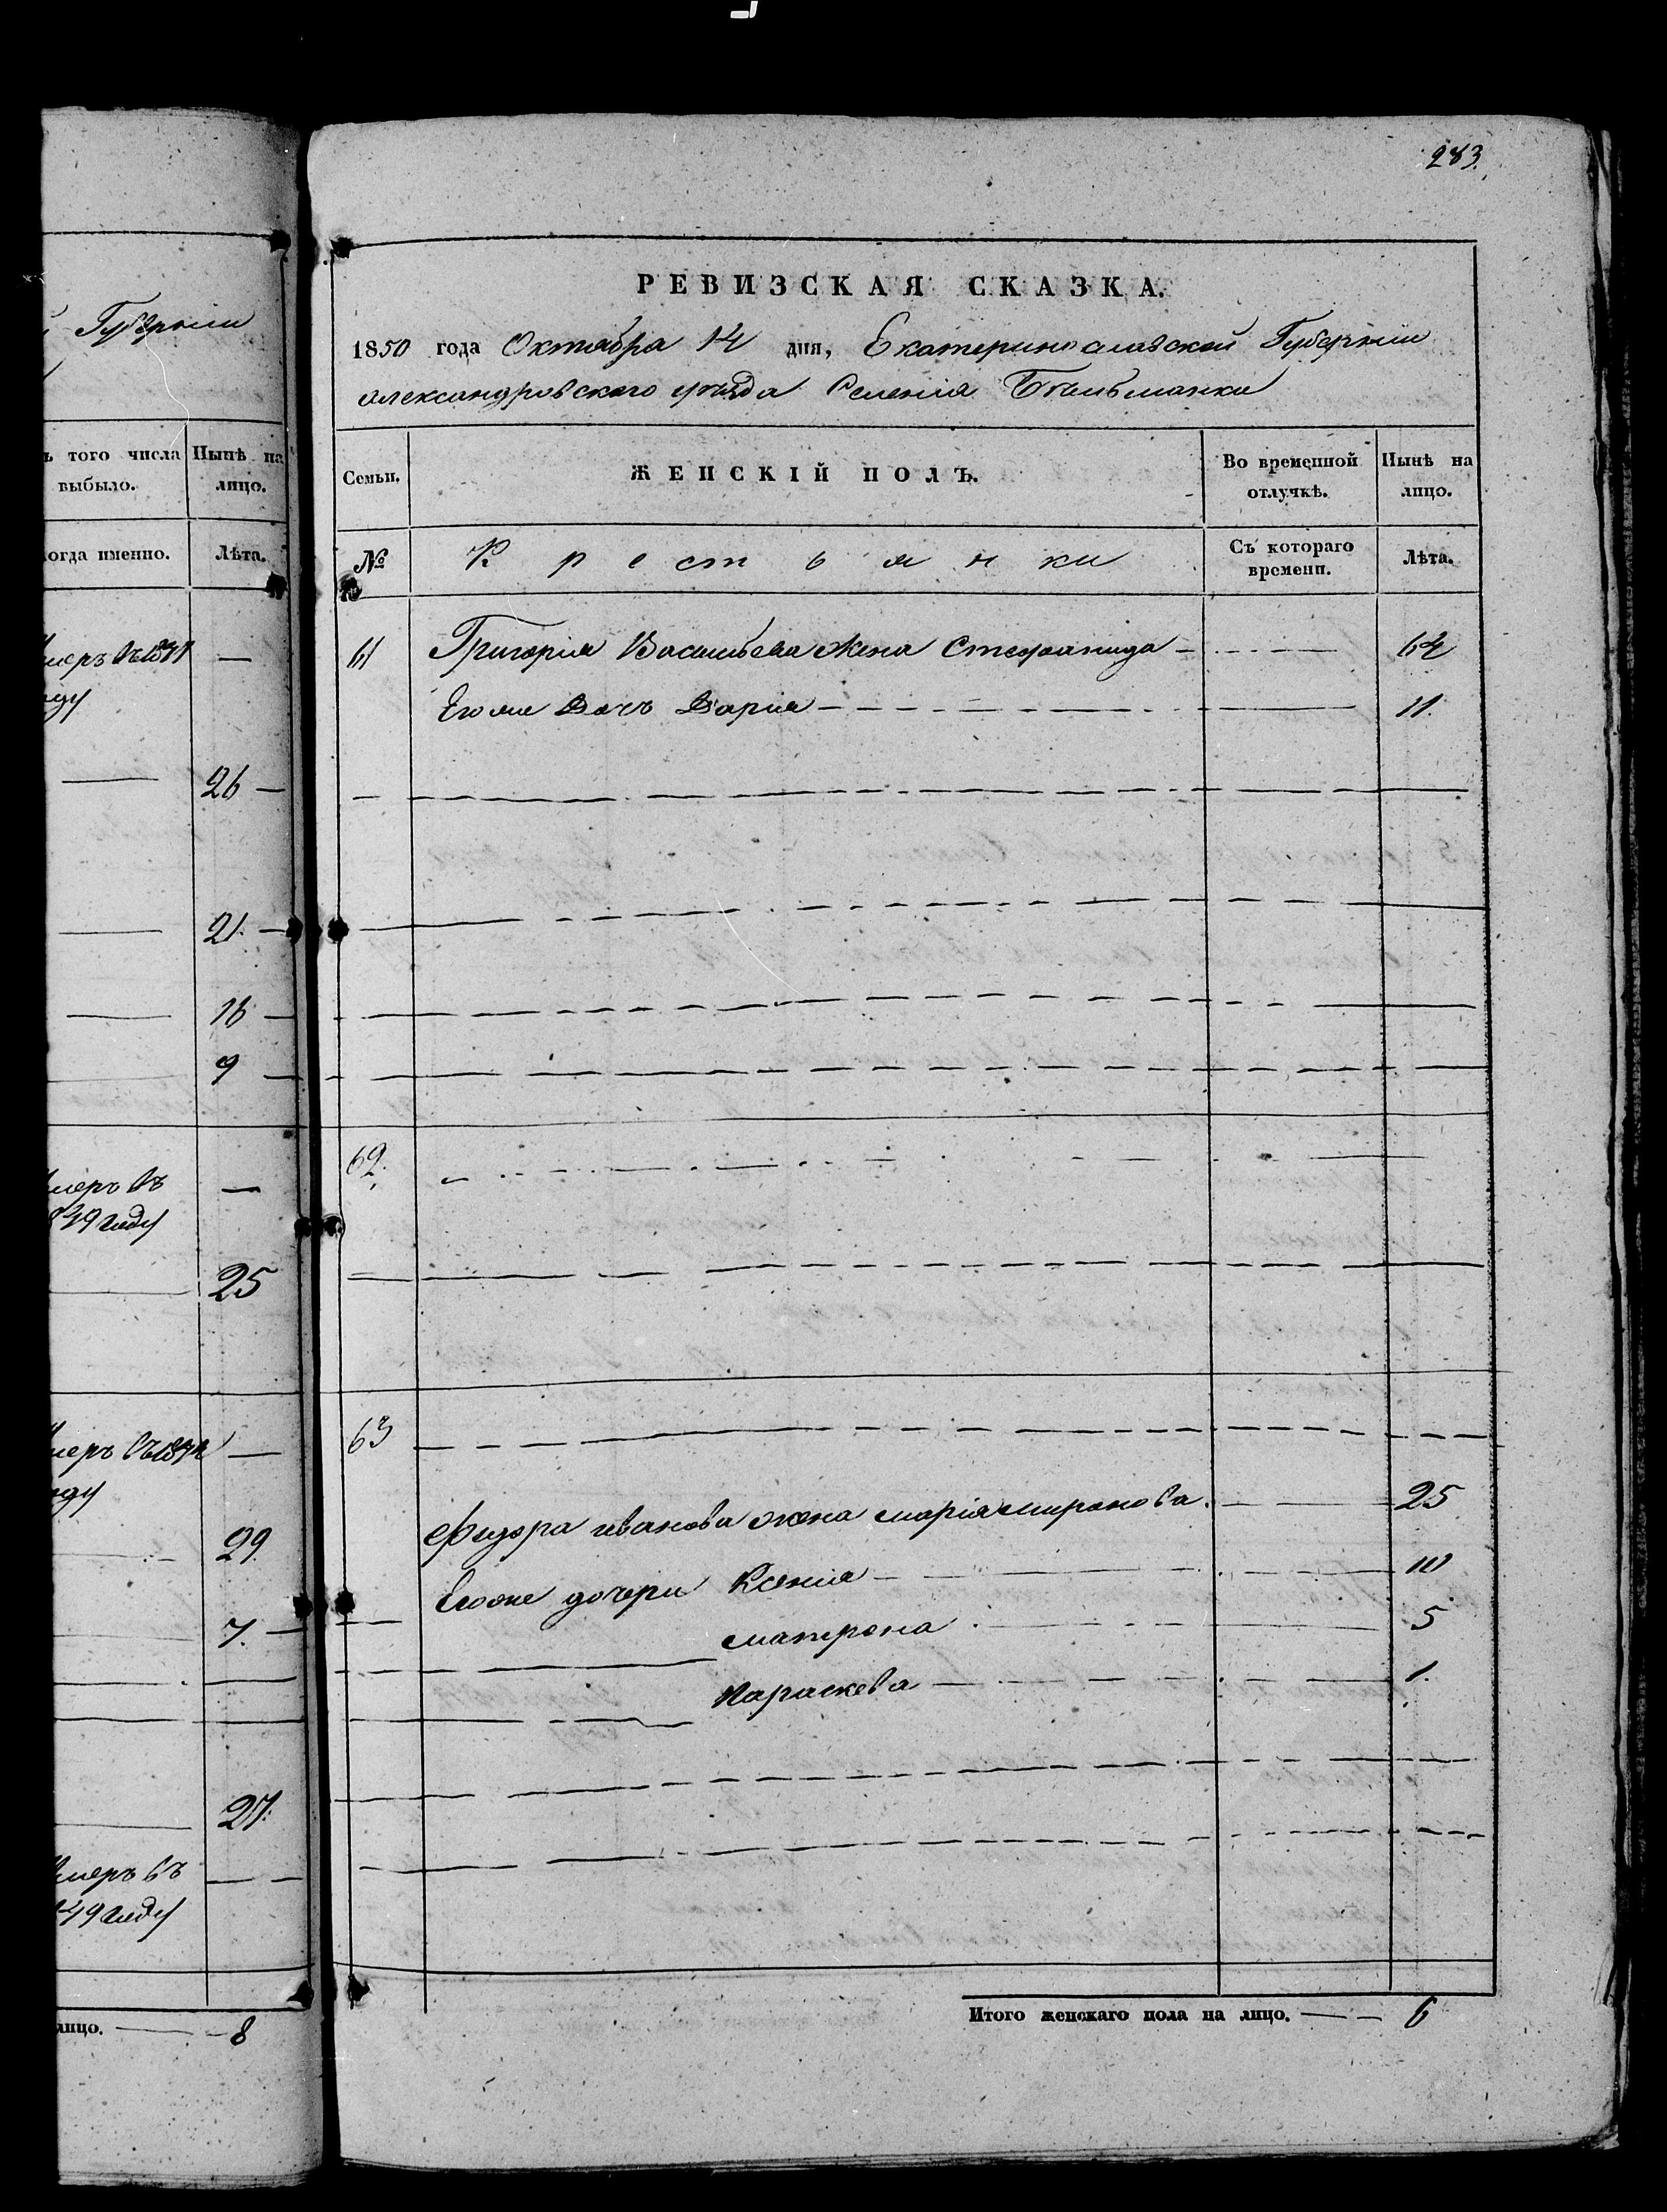 Губерніи
ъ того числа
выбыло.
Нынѣ на
лицо.
когда именно.
Лѣта.
умеръ въ 1841
году
26
21
16
9
умеръ въ
1849 году
25
умеръ въ 1842
году
29
7.
27
умеръ въ
1849 году
лицо. 8
283.
РЕВИЗСКАЯ СКАЗКА.
1850 года Октября 14 дня, Екатеринославской Губерніи
Александровскаго уѣзда Селенія Бѣльманки
Семьи.
ЖЕНСКІЙ ПОЛЪ.
Во временной
отлучкѣ.
Нынѣ на
лицо.
№
Крестьянки
Съ котораго
времени.
Лѣта.
61 Григорія Васильева жена Стефанида 64
Его же дочь Дарія 11.
62.
63
Фидора иванова жена марія миронова. 25
Егоже дочери Ксенія 10
матрона 5
Параскева 1.
Итого женскаго пола на лицо. 6